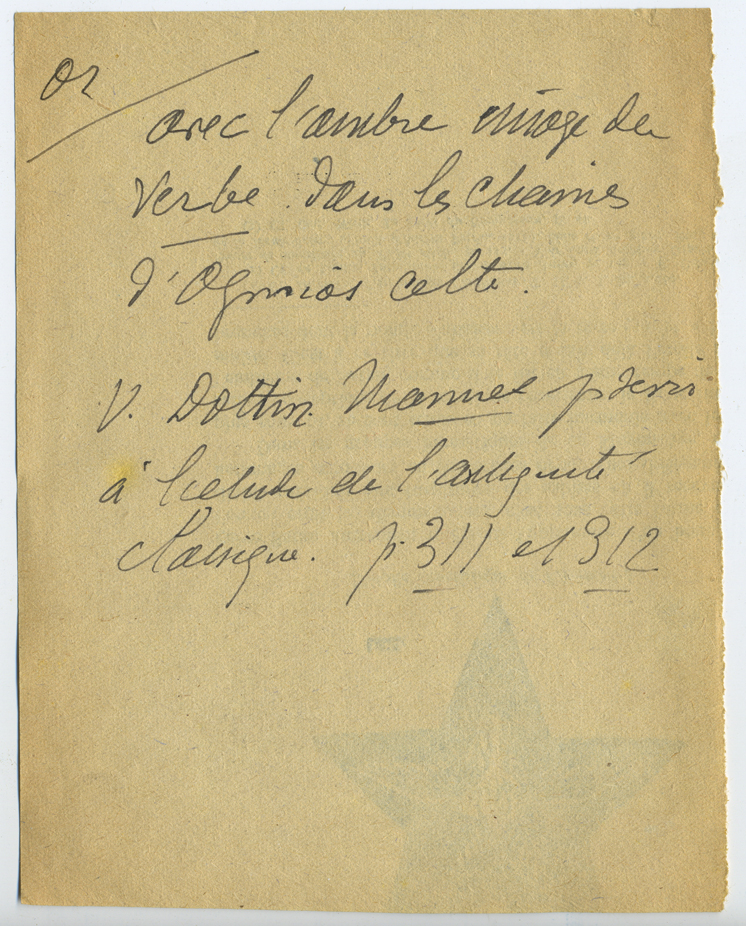 or
avec l'ambre image du
Verbe dans les chaines
d'Ogmios celte.
V. Dottin Manuel pr servir
à l'etude de l'antiquité
Classique. p. 311 et 312